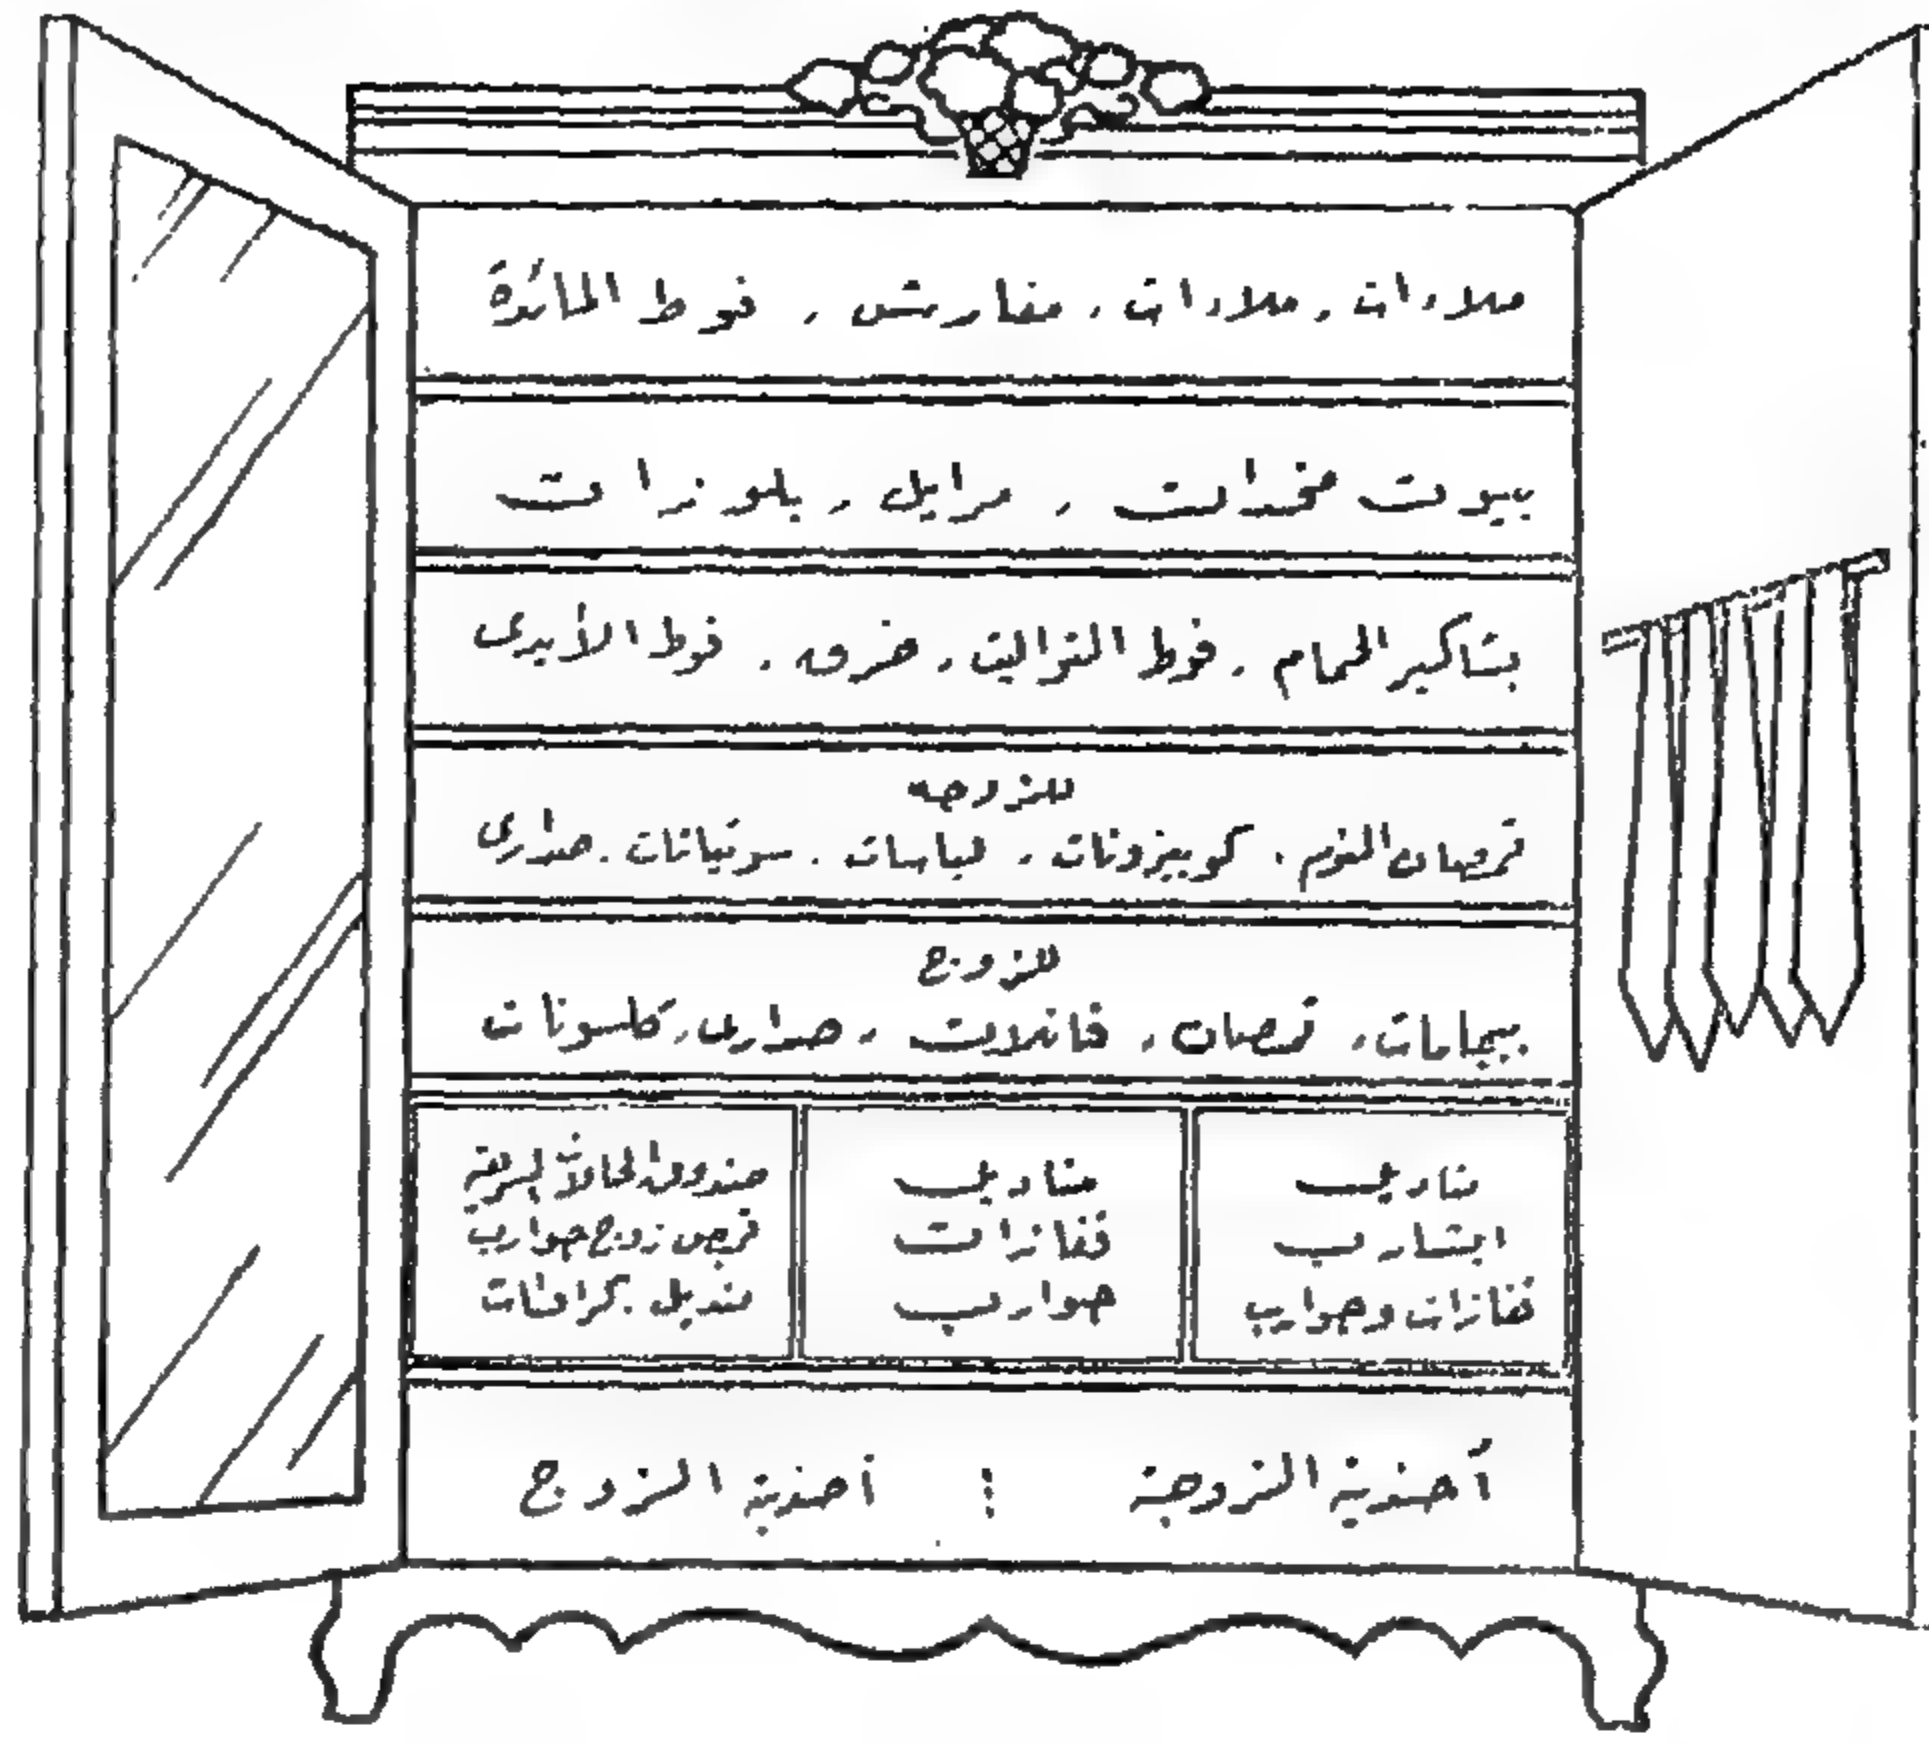 ملاءات ، ملاءات ، مفارش ، فوط المائدة
بيوت مخدات ، مرايل ، بلوزات
بشاكير الحمام ، فوط التواليت ، خرق ، فوط الأيدى
للزوجه
قمصان النوم ، كومبيزونات ، لباسات ، سوتيانات ، صدارى
للزوج
بيجامات ، قمصان ، فانلات ، صدارى ، كلسونات
مناديل
ايشارب
قفازات وجوارب
مناديل
قفازات
جوارب
صندوق لحالات السرعة
قميص زوج جوارب
منديل كرافتات
أحذية الزوجة : أحذية الزوج